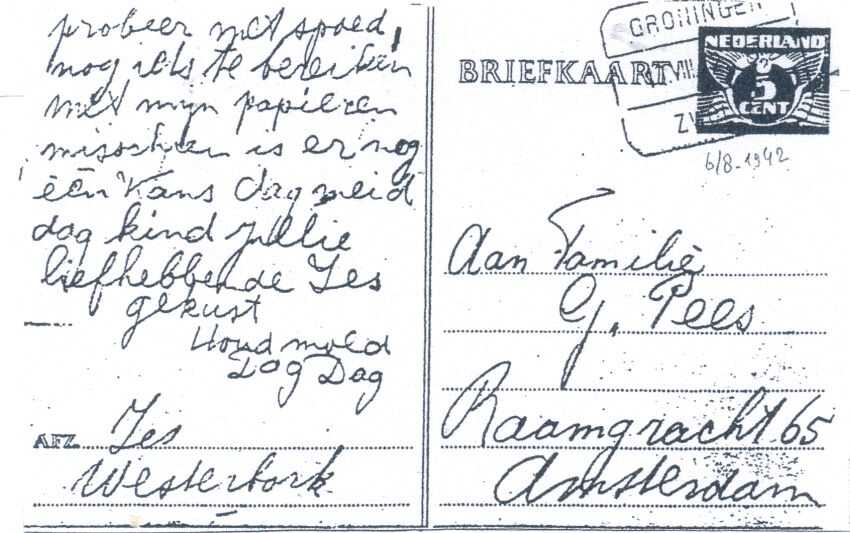 probeer met spoed,
nog iets te bereiken
met mijn papieren
misschien is er nog
één kans dag meid
dag kind jullie
liefhebbende Jes
gekust
Houd moed
Dag Dag
AFZ. Jes
Westerbork
BRIEFKAART
GRONINGEN
VIII
NEDERLAND
5
CENT
6/8-1942
Aan Familie
G. Pees
Raamgracht 65
Amsterdam